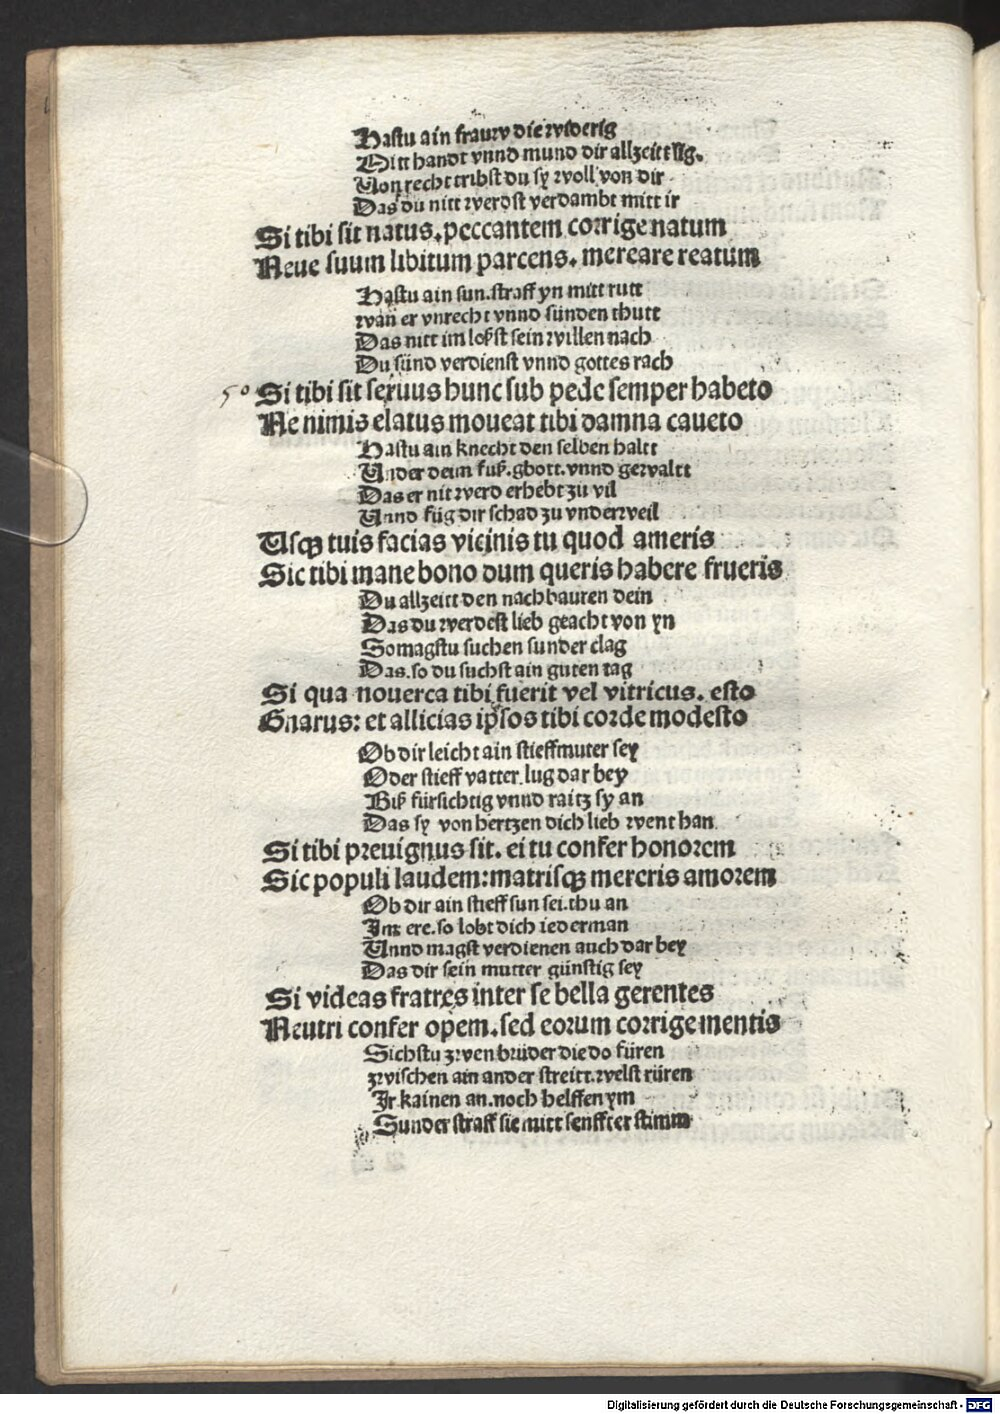 Hastu ain frauw die widerig
Mitt handt vnnd mund dir allzeitt lig.
Von recht tribst du sy woll von dir
Das du nitt werdst verdambt mitt ir
Si tibi sit natus. peccantem corrige natum
Neue suum libitum parcens. mereare reatum
Hastu ain sun. straff yn mitt rutt
wan̄ er vnrecht vnnd sünden thutt
Das nitt im loßst sein willen nach
Du sünd verdienst vnnd gottes rach
50 Si tibi sit seruus hunc sub pede semper habeto
Ne nimis elatus moueat tibi damna caueto
Hastu ain knecht den selben haltt
Vnder deim fuß. gbott. vnnd gewaltt
Das er nit werd erhebt zu vil
Vnnd füg dir schad zu vnderweil
Vsqꝫ tuis facias vicinis tu quod ameris
Sic tibi mane bono dum queris habere frueris
Du allzeitt den nachbauren dein
Das du werdest lieb geacht von yn
So magstu suchen sunder clag
Das. so du suchst ain guten tag
Si qua nouerca tibi fuerit vel vitricus. esto
Gnarus: et allicias ipsos tibi corde modesto
Ob dir leicht ain stieffmuter sey
Oder stieff vatter. lug dar bey
Biß fürsichtig vnnd raitz sy an
Das sy von hertzen dich lieb went han
Si tibi preuignus sit. ei tu confer honorem
Sic populi laudem: matrisqꝫ mereris amorem
Ob dir ain stieff sun sei. thu an
Im ere. so lobt dich iederman
Vnnd magst verdienen auch dar bey
Das dir sein mutter günstig sey
Si videas fratres inter se bella gerentes
Neutri confer opem. sed eorum corrige mentis
Sichstu zwen brüder die do füren
zwischen ain ander streitt. welst rüren
Ir kainen an. noch helffen ym
Sunder straff sie mitt senffter stimm
Digitalisierung gefördert durch die Deutsche Forschungsgemeinschaft - DFG